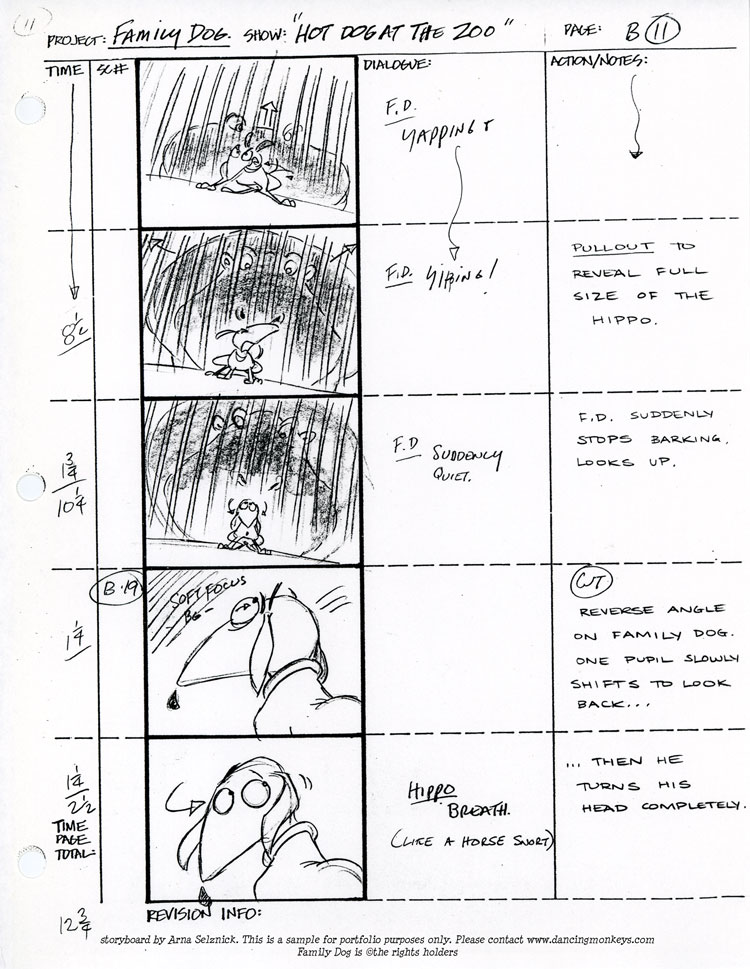 11
PROJECT: FAMILY DOG. SHOW: "HOT DOG AT THE ZOO" PAGE: B 11
TIME SC# DIALOGUE: ACTION/NOTES:
F.D.
YAPPING &
F.D. YIPPING!
PULLOUT TO
REVEAL FULL
SIZE OF THE
HIPPO.
8 1/2
F.D. SUDDENLY
QUIET.
F.D. SUDDENLY
STOPS BARKING.
LOOKS UP.
3/4
10 1/4
B.19
SOFT FOCUS
BG-
CUT
REVERSE ANGLE
ON FAMILY DOG.
ONE PUPIL SLOWLY
SHIFTS TO LOOK
BACK...
1 1/4
HIPPO
BREATH.
(LIKE A HORSE SNORT)
... THEN HE
TURNS HIS
HEAD COMPLETELY.
1 1/4
2 1/2
TIME
PAGE
TOTAL:
12 3/4
REVISION INFO:
storyboard by Arna Selznick. This is a sample for portfolio purposes only. Please contact www.dancingmonkeys.com
Family Dog is ©the rights holders